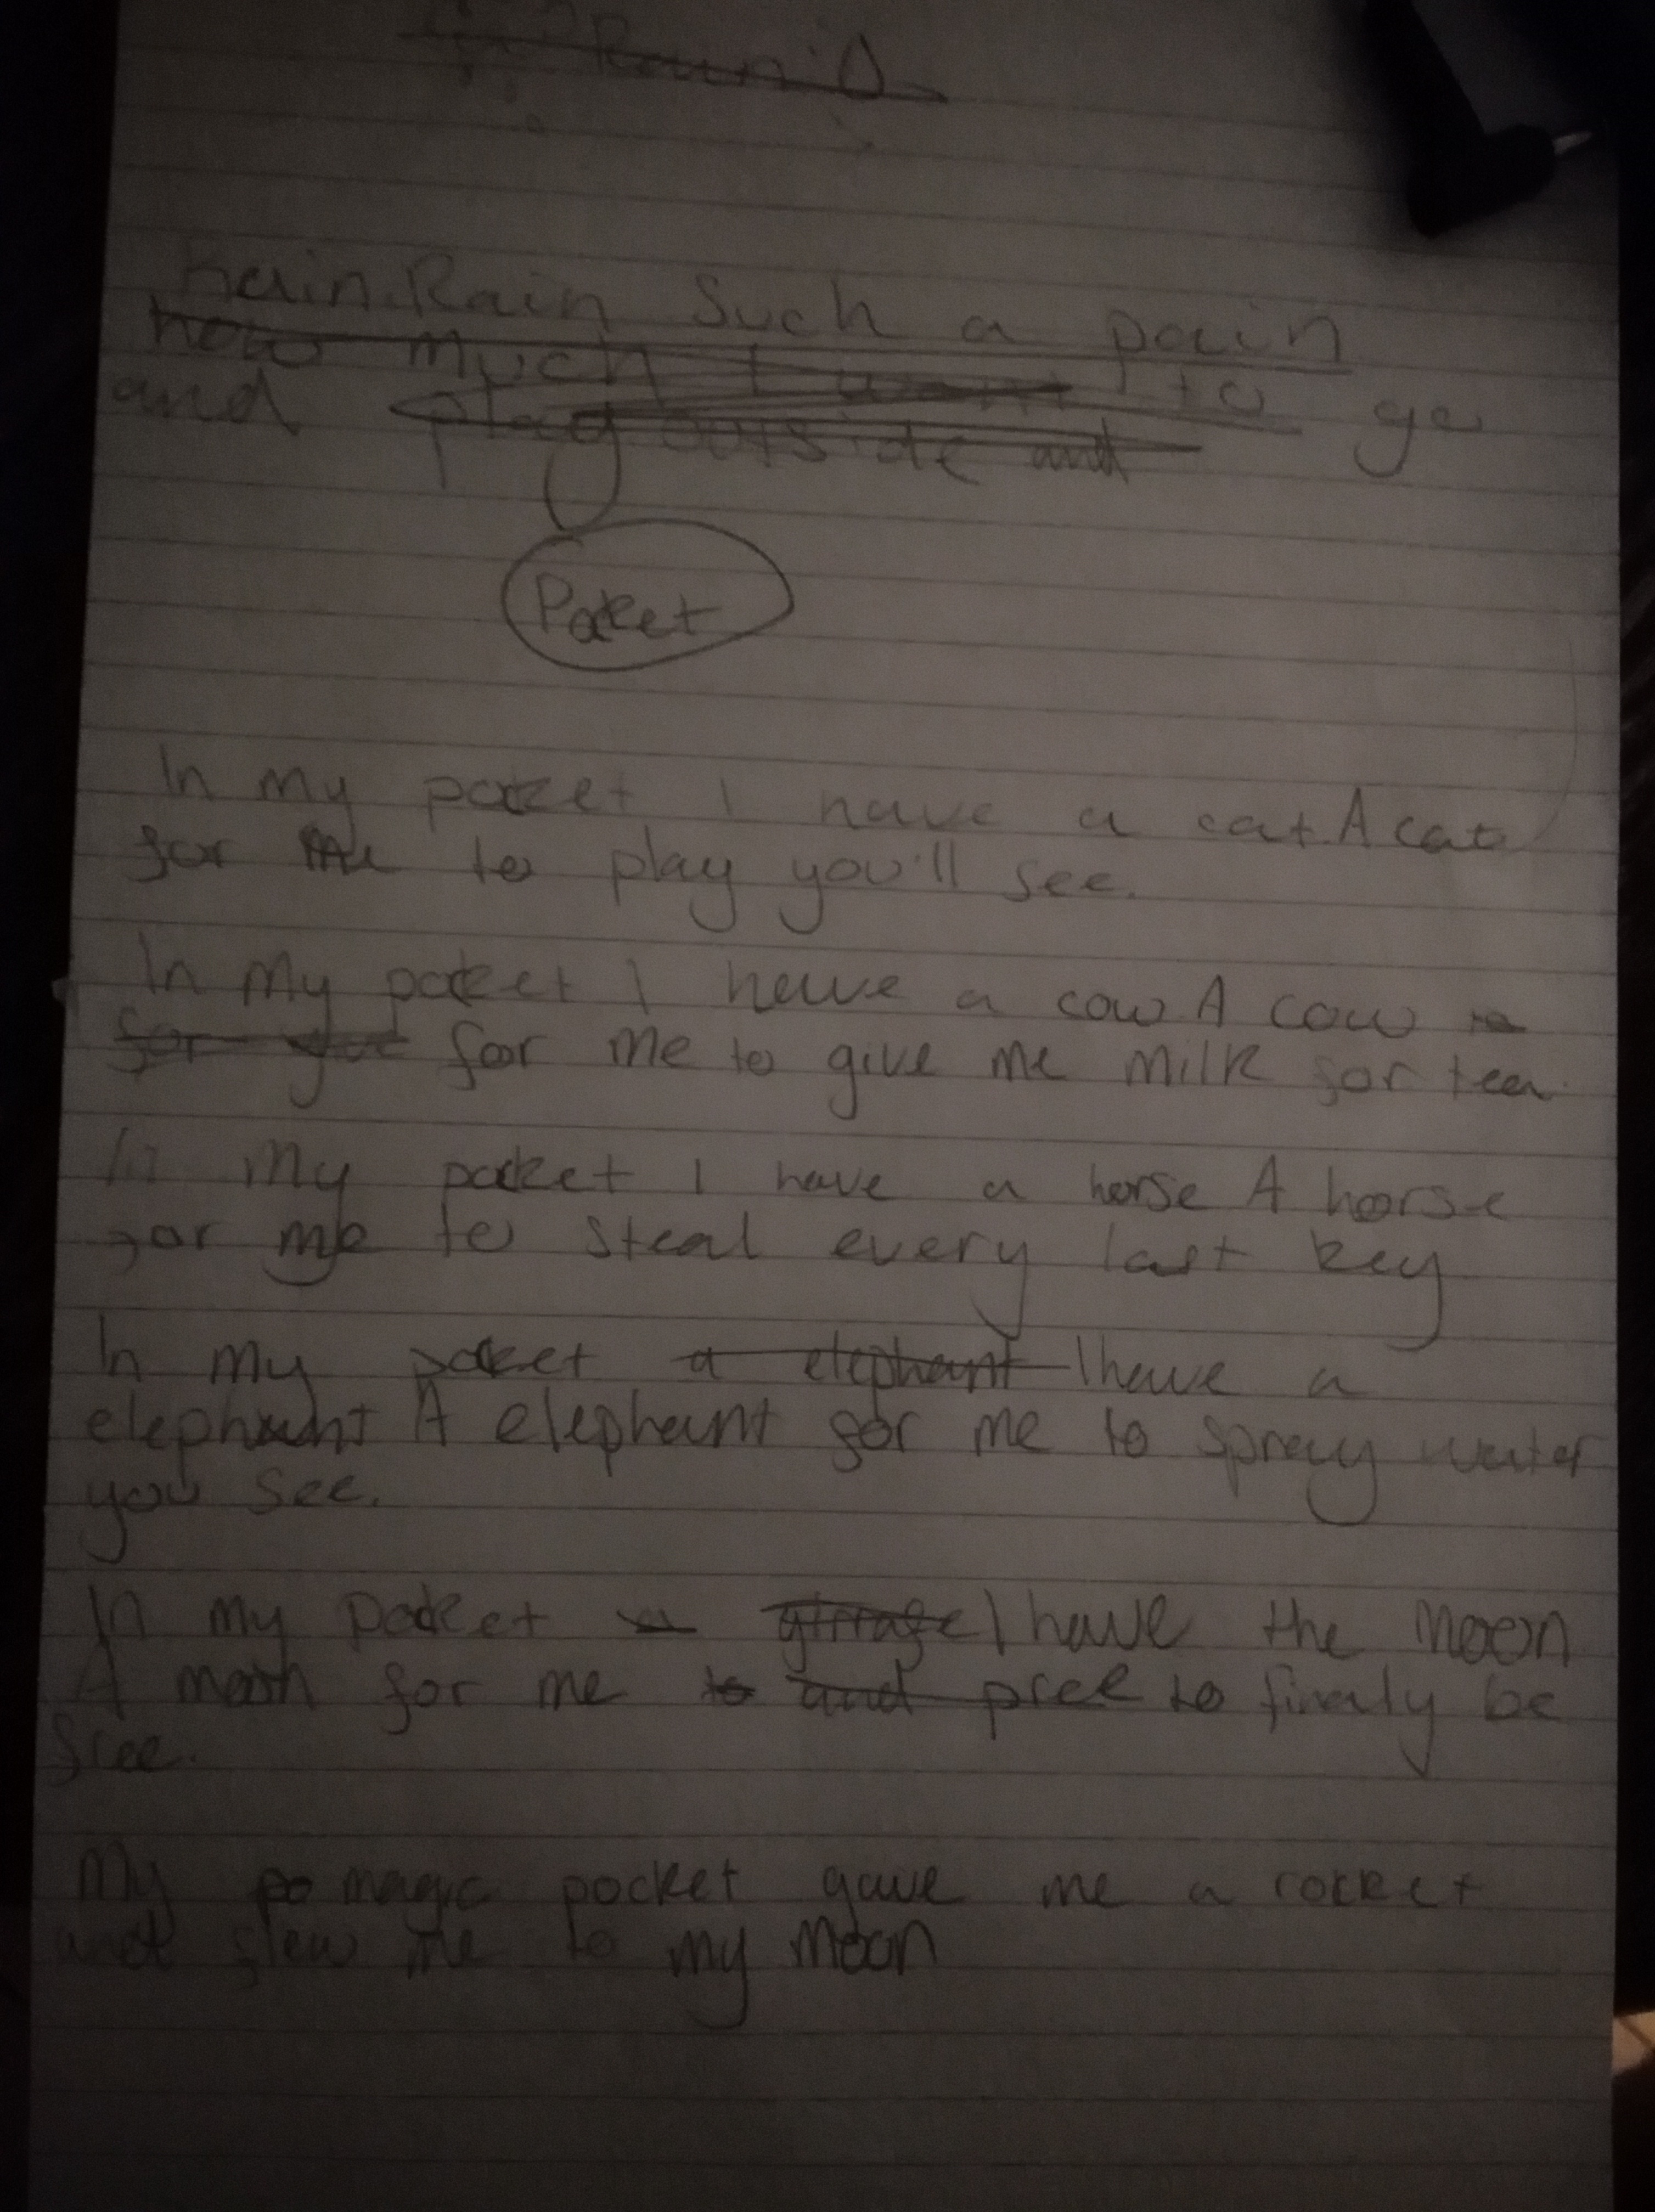 Rain
Rain. Rain Such a pain
how much I want to go
and play outside and
Pocket
In my pocket I have a cat A cat
for me to play you'll see.
In my pocket I have a cow A cow
for you for me to give me milk for tea.
In my pocket I have a horse A horse
for me to steal every last key
In my pocket a elephant I have a
elephant A elephant for me to spray water
you see.
In my pocket a giraffe I have the moon
A moon for me to and pree to finaly be
free.
My po magic pocket gave me a rocket
and flew me to my moon